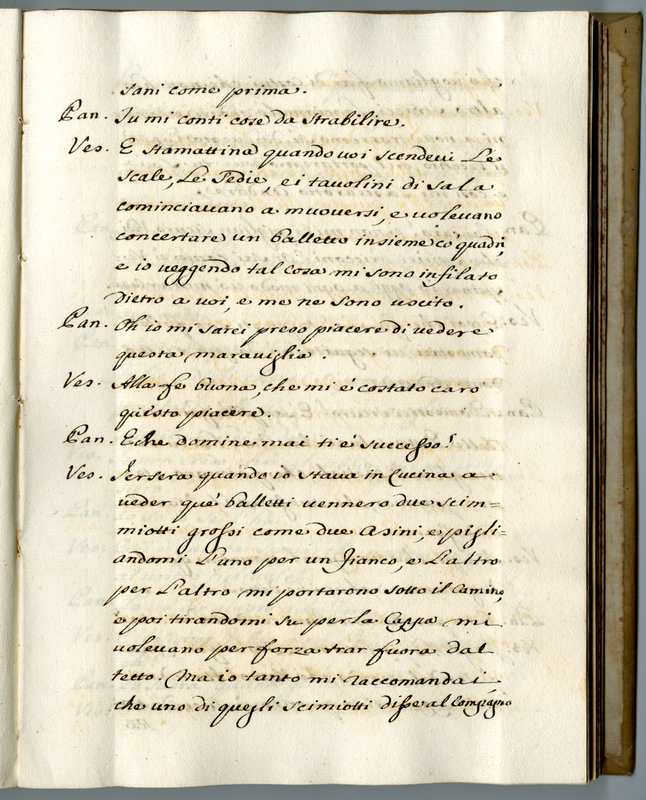 sani come prima.
Pan. Tu mi conti cose da strabilire.
Ves. E stamattina quando voi scendevi Le
scale, Le Sedie, e i tavolini di sala
cominciavano a muoversi, e volevano
concertare un balletto insieme co' quadri,
e io veggendo tal cosa mi sono infilato
dietro a voi, e me ne sono uscito.
Pan. Oh io mi sarei preso piacere di vedere
questa maraviglia.
Ves. Alla fe buona, che mi é costato caro
questo piacere.
Pan. E che domine mai ti é successo?
Ves. Jersera quando io stava in Cucina a
veder que' balletti vennero due scim=
miotti grossi come due Asini, e pigli=
andomi L'uno per un fianco, e L'altro
per L'altro mi portarono sotto il Camino,
e poi tirandomi su per la Cappa mi
volevano per forza trar fuora dal
tetto. Ma io tanto mi raccomandai
che uno di quegli scimiotti disse al Compagno